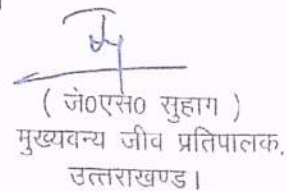 ( जे0एस0 सुहाग )
मुख्यवन्य जीव प्रतिपालक,
उत्तराखण्ड।